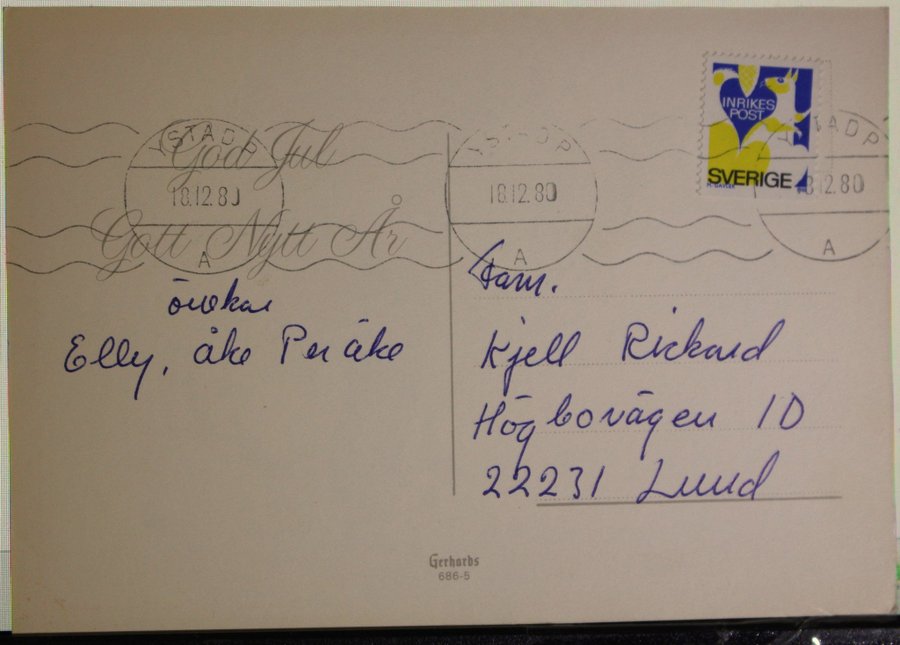 YSTAD P
18.12.80
A
YSTAD P
18.12.80
A
YSTAD P
18.12.80
A
INRIKES
POST
SVERIGE
God Jul
Gott Nytt År
önskar
Elly, Åke Per Åke
Fam.
Kjell Rickard
Högbovägen 1D
22231 Lund
Gerhards
686-5